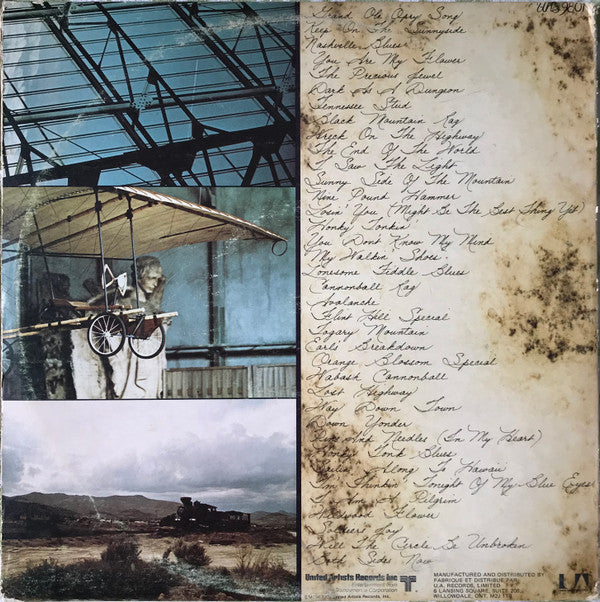 UAS 9801
Grand Ole Opry Song
Keep On The Sunnyside
Nashville Blues
You Are My Flower
The Precious Jewel
Dark As A Dungeon
Tennessee Stud
Black Mountain Rag
Wreck On The Highway
The End Of The World
I Saw The Light
Sunny Side Of The Mountain
Nine Pound Hammer
Losin' You (Might Be The Best Thing Yet
Honky Tonkin'
You Don't Know My Mind
My Walkin' Shoes
Lonesome Fiddle Blues
Cannonball Rag
Avalanche
Flint Hill Special
Togary Mountain
Earl's Breakdown
Orange Blossom Special
Wabash Cannonball
Lost Highway
Way Down Town
Down Yonder
Pins And Needles (In My Heart)
Honky Tonk Blues
Sailin' Along To Hawaii
I'm Thinkin' Tonight Of My Blue Eyes
I Am A Pilgrim
Wildwood Flower
Soldier's Joy
Will The Circle Be Unbroken
Both Sides Now
United Artists Records Inc
Entertainment from
Transamerica Corporation
United Artists Records, Inc.
MANUFACTURED AND DISTRIBUTED BY
FABRIQUE ET DISTRIBUE PAR
U.A. RECORDS, LIMITED
6 LANSING SQUARE, SUITE 208
WILLOWDALE, ON. M2J 1T5
UA